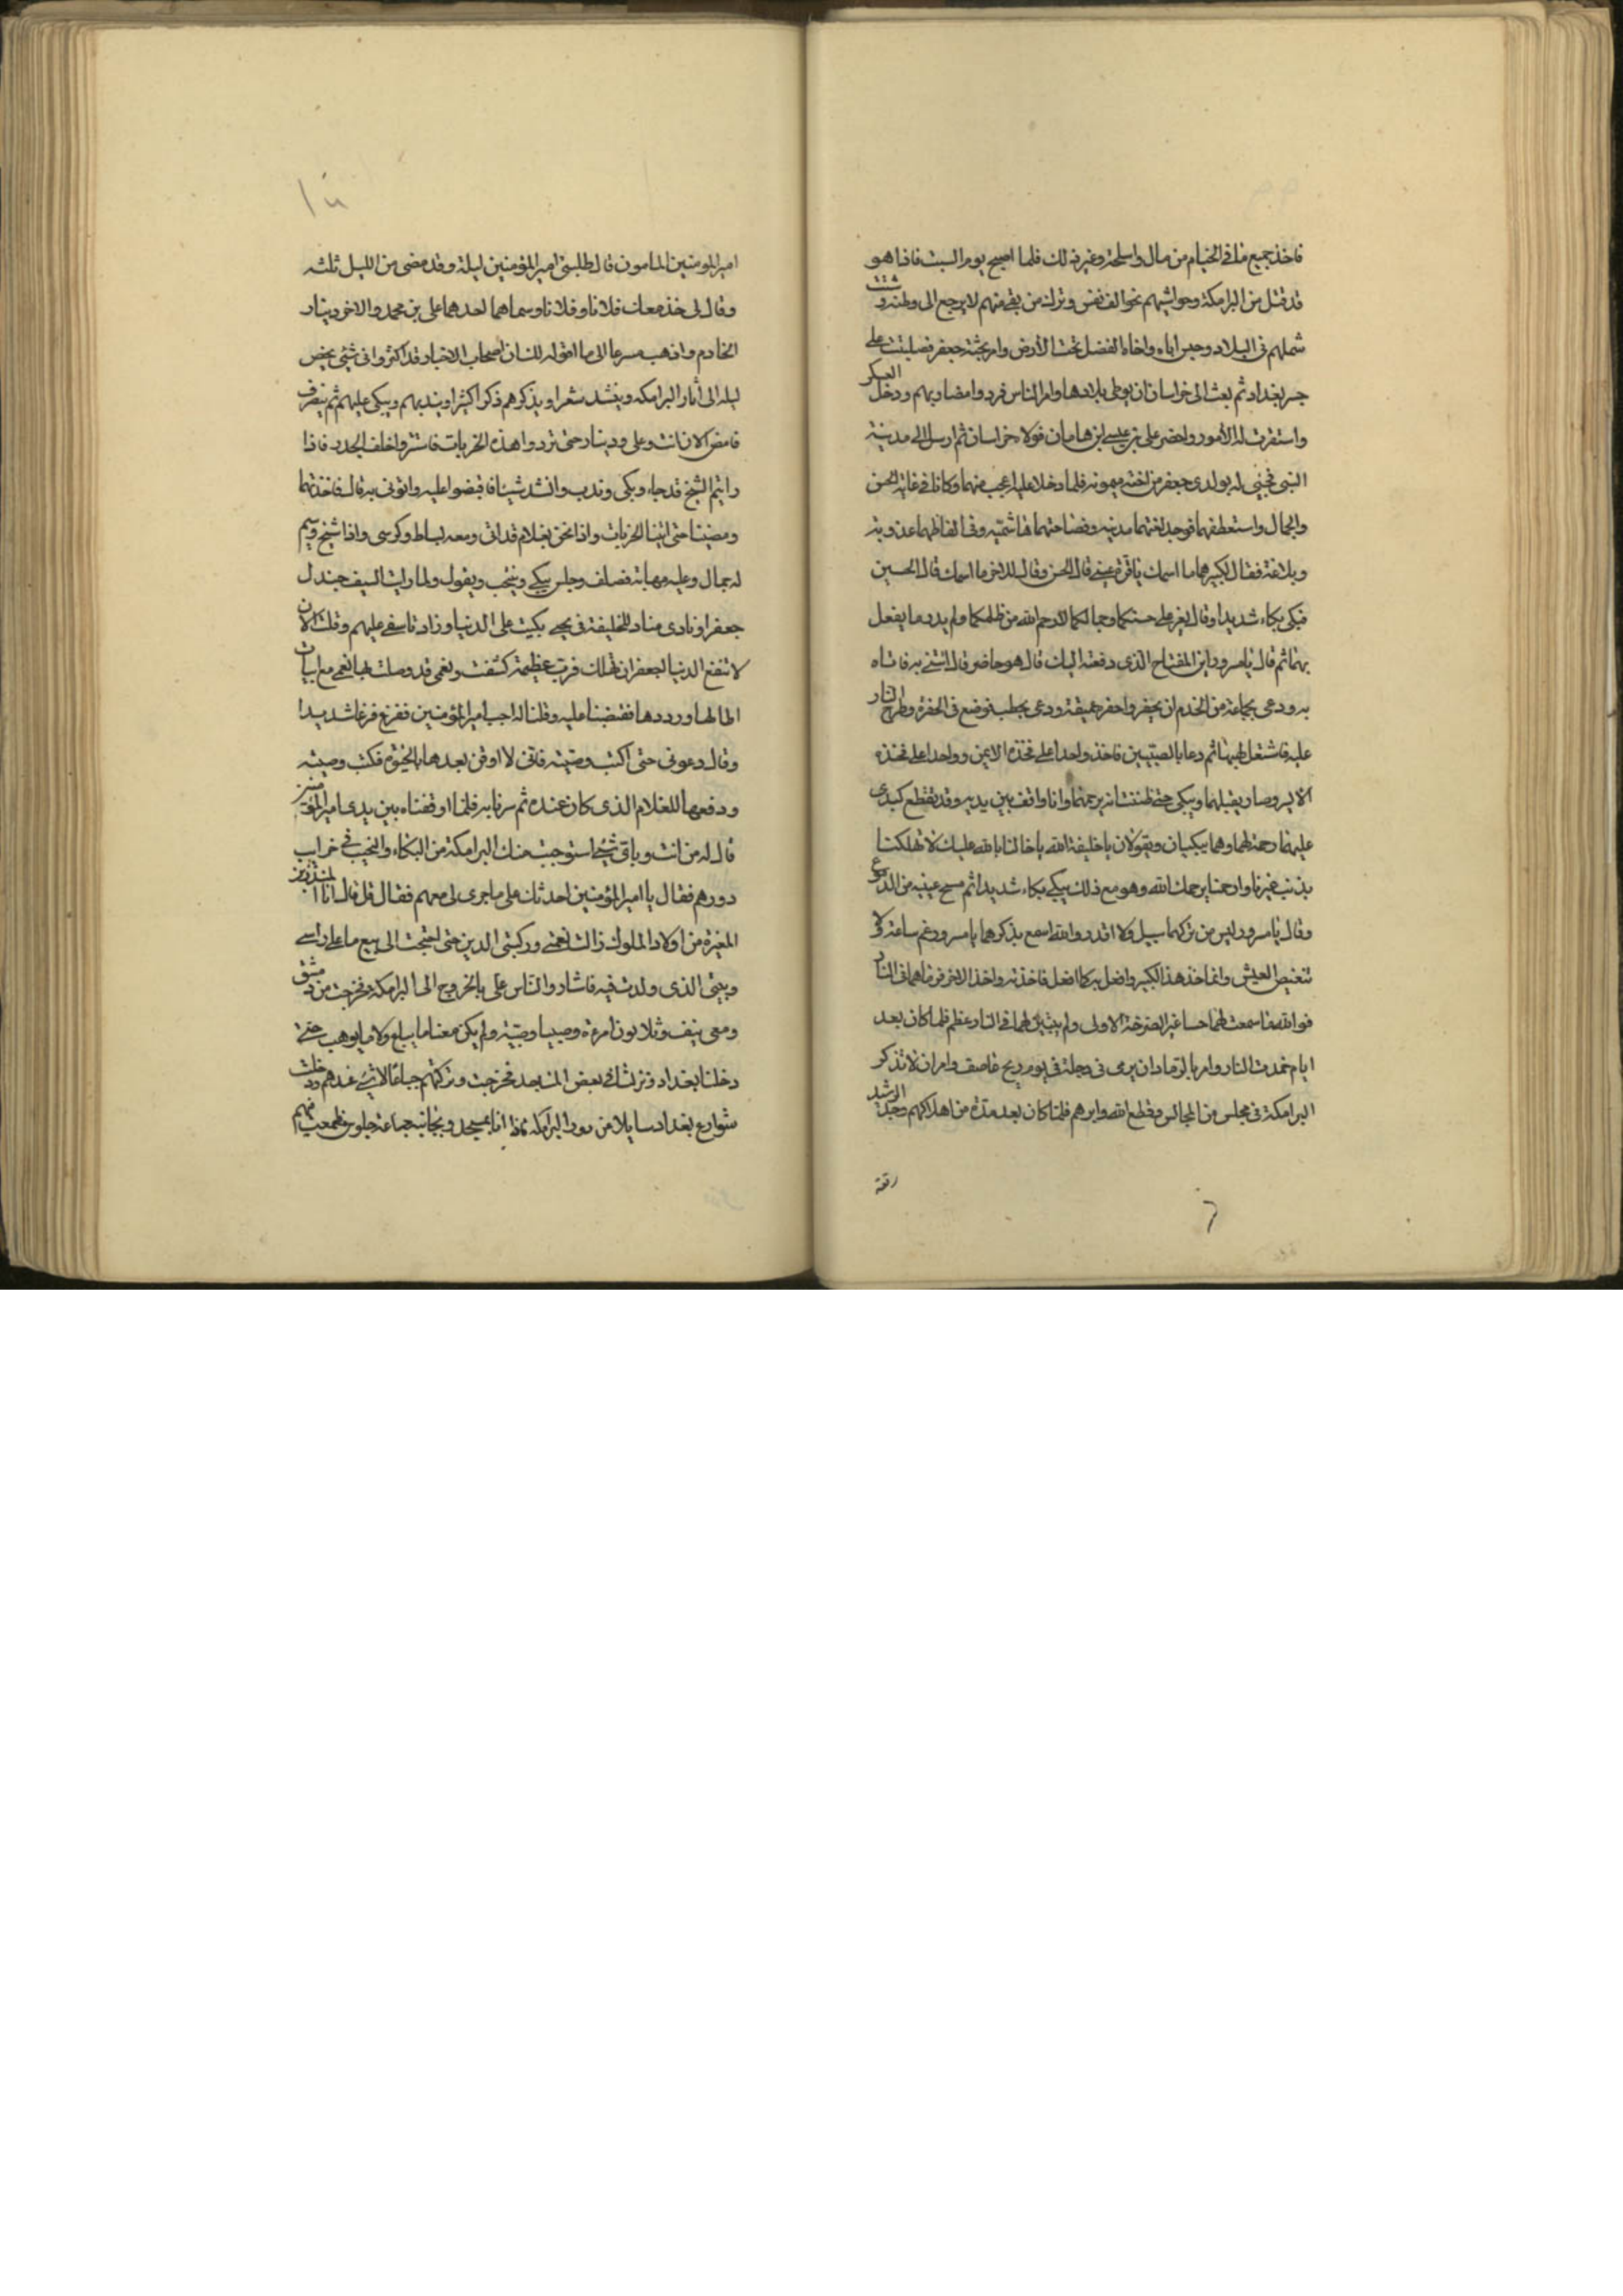 فاخذ جميع ما في الخيام من مال واسلحة وغير ذلك فلما اصبح يوم السبت فاذا هو
قد قتل من البرامكة وحواشيهم نحو الف نفس وترك من بقي منهم لا يرجع الى وطنه وشتت
شملهم في البلاد وحبس اباه واخاه الفضل تحت الأرض وامر بجثة جعفر فصلبت على
جسر بغداد ثم بعث الى خراسان ان يوطى بلادها وامر الناس فرد وامضاد بهم ودخل العسكر
واستقرت له الأمور واحضر على بن عيسى ابن هامان فولاه خراسان ثم ارسل الى مدينة
النبي فجيئ له بولدى جعفر من اخته ميمونه فلما دخلا عليه اعجب منهما وكانا في غاية الحسن
والجمال واستعطفهما فوجد لغتهما مدنيه وفصاحتهما هاشميه وفي الفاظهما عذوبة
وبلاغة فقال لكبيرهما ما اسمك يا قرة عيني قال الحسن وقال للاخر ما اسمك قال الحسين
فبكى بكاء شديدا وقال يعز على حسنكما وجمالكما لا رحم الله من ظلمكما ولم يدر ما يفعل
بهما ثم قال يا مسرور اين المفتاح الذى دفعته اليك قال هو حاضر قال ائتني به فاتاه
به ودعى بجماعة من الخدم ان يحفروا حفرة عميقة ودعى بحطب فوضع في الحفرة وطرح النار
عليه فاشتعل لهيبها ثم دعا بالصبيين فاخذ واحدا على فخذه الايمن وواحدا على فخذه
الايسر وصار يقبلهما ويبكى حتى ظننت انه يرحمهما وانا واقف بين يديه وقد تقطع كبدى
عليهما رحمة لهما وهما يبكيان ويقولان يا خليفة الله يا خالنا بالله عليك لا تهلكنا
بذنب غيرنا وارحمنا يرحمك الله وهو مع ذلك يبكى بكاء شديدا ثم مسح عينيه من الدموع
وقال يا مسرور ليس من تركهما سبيل ولا اقدر والله اسمع بذكرهما يا مسرور غم ساعة ولا
تنغيص العيش وانما خذ هذا الكبير وافعل به كما افعل فاخذته واخذ الاخر فرماهما في النار
فوالله ما سمعت لهما حسا غير الصرخة الاولى ولم يتبين لهما في النار عظم فلما كان بعد
ايام خمدت النار وامر بالرماد ان يرمى في دجلة في يوم ريح عاصف وامر ان لا تذكر
البرامكة في مجلس من المجالس وقطع الله دابرهم فلما كان بعد مدة من اهلاكهم وجد الرشيد
رقعة
امير المومنين المامون قال طلبني امير المؤمنين ليلة وقد مضى من الليل ثلثه
وقال لى خذ معك فلانا وفلانا وسماهما احدهما على بن محمد والاخر دينار
الخادم واذهب مسرعا الى ما اقوله لك ان اصحاب الاخبار قد اكثروا في شئي يحض
ليله الى أثار البرامكه وينشد شعرا ويذكرهم ذكرا كثيرا ويندبهم ويبكى عليهم ثم ينصرف
فامض الان انت وعلى ودينار حتى تردوا هذه الخربات فاستتروا خلف الجدر فاذا
رايتم الشيخ قد جاء وبكى وندب وانشد شيئا فاقبضوا عليه واتونى به قال فاخذتهما
ومضينا حتى اتينا الخربات واذا نحن بغلام قد اتى ومعه بساط وكرسى واذا شيخ وسيم
له جمال وعليه مهابة فصلف وجلس يبكى وينتحب ويقول ولما رايت السيف جندل
جعفرا ونادى مناد للخليفة في يحيى بكيت على الدنيا وزاد تاسفى عليهم وقلت الان
لا تنفع الدنيا لجعفر ان تهلك فرب عظيمة كشفت ونعمى قد وصلت بها نعمى مع ابيات
اطالها ورددها فقبضنا عليه وقلنا له اجب امير المؤمنين ففزع فزعا شديدا
وقال دعوني حتى اكتب وصيته فانى لا اوقن بعدها بالحيوة فكتب وصيته
ودفعها للغلام الذى كان عنده ثم سرنا به فلما اوقفناه بين يدى امير المؤمنين
قال له من انت وباى شيئ استوجبت منك البرامكة من البكاء والنحيب في خراب
دورهم فقال يا امير المؤمنين احدثك على ما جرى لى معهم فقال قل قال انا المنذر بن
المغيرة من اولاد الملوك زالت نعمتى وركبنى الدين حتى احتجت الى بيع ما على راسى
وبيتى الذى ولدت فيه فاشار والناس على بالخروج الى البرامكة فخرجت من دمشق
ومعى نيف وثلاثون امرءة وصبيا وصبية ولم يكن معنا ما يباع ولا ما يوهب حتى
دخلنا بغداد ونزلت في بعض المساجد فخرجت وتركتهم جياعا لا شئ عندهم ودخلت
شوارع بغداد سايلا من دور البرامكة فاذا انا بمسجد وبجانبه جماعة جلوس